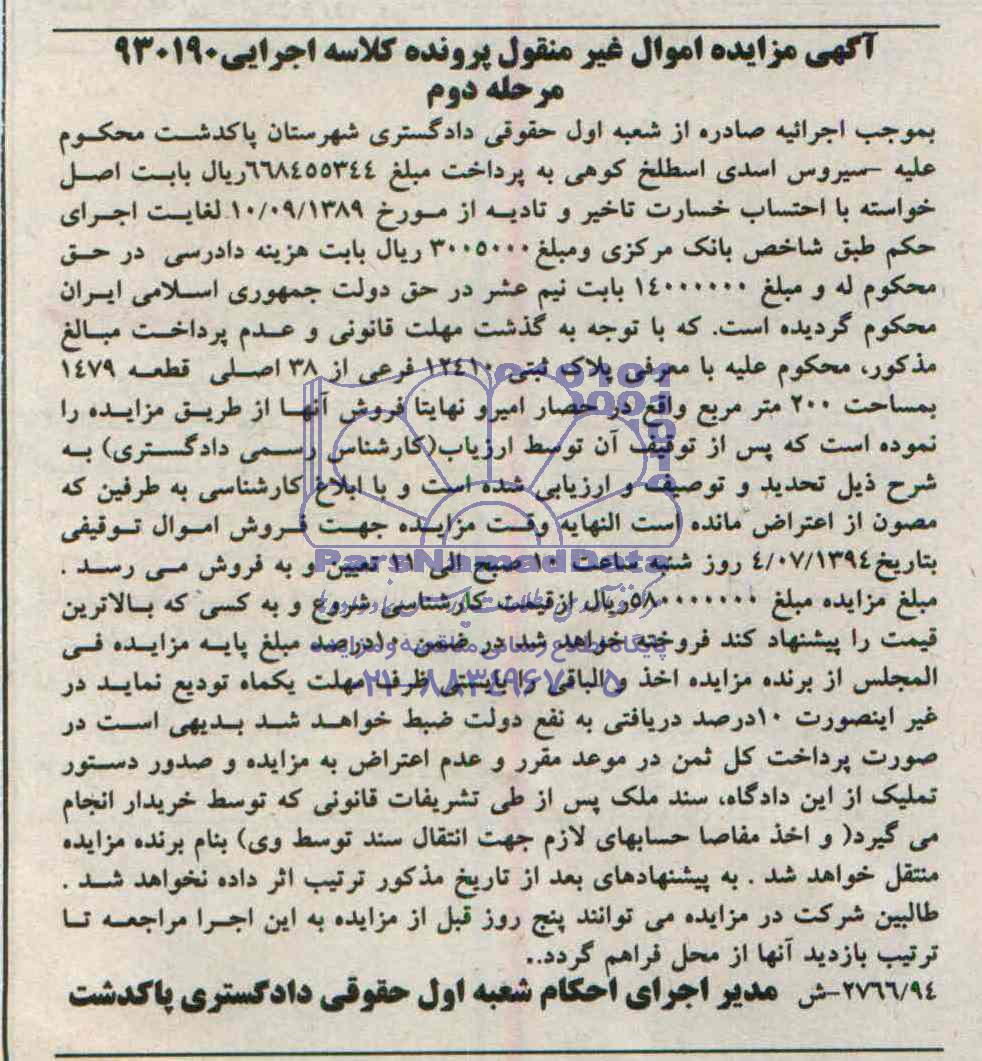 آگهی مزایده اموال غیر منقول پرونده کلاسه اجرایی۹۳۰۱۹۰
مرحله دوم
بموجب اجرائیه صادره از شعبه اول حقوقی دادگستری شهرستان پاکدشت محکوم
علیه -سیروس اسدی اسطلخ کوهی به پرداخت مبلغ ۶۶۸۴۵۵۳۴۴ریال بابت اصل
خواسته با احتساب خسارت تاخیر و تادیه از مورخ ۱۰/۰۹/۱۳۸۹ لغایت اجرای
حکم طبق شاخص بانک مرکزی ومبلغ۳۰۰۵۰۰۰ ریال بابت هزینه دادرسی در حق
محکوم له و مبلغ ۱۴۰۰۰۰۰۰ بابت نیم عشر در حق دولت جمهوری اسلامی ایران
محکوم گردیده است. که با توجه به گذشت مهلت قانونی و عدم پرداخت مبالغ
مذکور، محکوم علیه با معرفی پلاک ثبتی ۱۲۴۱۰ فرعی از ۳۸ اصلی قطعه ۱۴۷۹
بمساحت ۲۰۰ متر مربع واقع در حصار امیرو نهایتا فروش آنها از طریق مزایده را
نموده است که پس از توقیف آن توسط ارزیاب(کارشناس رسمی دادگستری) به
شرح ذیل تحدید و توصیف و ارزیابی شده است و با ابلاغ کارشناسی به طرفین که
مصون از اعتراض مانده است النهایه وقت مزایده جهت فروش اموال توقیفی
بتاریخ۴/۰۷/۱۳۹۴ روز شنبه ساعت ۱۰ صبح الی ۱۱ تعیین و به فروش می رسد .
مبلغ مزایده مبلغ ۵۸۰۰۰۰۰۰۰ریال ازقیمت کارشناسی شروع و به کسی که بالاترین
قیمت را پیشنهاد کند فروخته خواهد شد در ضمن ۱۰درصد مبلغ پایه مزایده فی
المجلس از برنده مزایده اخذ والباقی را بایستی ظرف مهلت یکماه تودیع نماید در
غیر اینصورت ۱۰درصد دریافتی به نفع دولت ضبط خواهد شد بدیهی است در
صورت پرداخت کل ثمن در موعد مقرر و عدم اعتراض به مزایده و صدور دستور
تملیک از این دادگاه، سند ملک پس از طی تشریفات قانونی که توسط خریدار انجام
می گیرد( و اخذ مفاصا حسابهای لازم جهت انتقال سند توسط وی) بنام برنده مزایده
منتقل خواهد شد . به پیشنهادهای بعد از تاریخ مذکور ترتیب اثر داده نخواهد شد .
طالبین شرکت در مزایده می توانند پنج روز قبل از مزایده به این اجرا مراجعه تا
ترتیب بازدید آنها از محل فراهم گردد..
۲۷۶۶/۹۴-ش مدیر اجرای احکام شعبه اول حقوقی دادگستری پاکدشت
ParsNamadData
۰۲۱-۸۸۳۴۹۶۷۰-۵